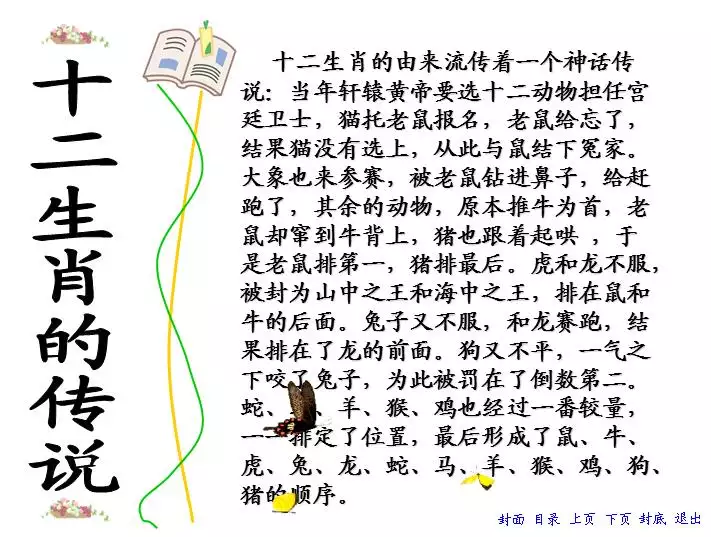 十二生肖的传说
十二生肖的由来流传着一个神话传
说：当年轩辕黄帝要选十二动物担任宫
廷卫士，猫托老鼠报名，老鼠给忘了，
结果猫没有选上，从此与鼠结下冤家。
大象也来参赛，被老鼠钻进鼻子，给赶
跑了，其余的动物，原本推牛为首，老
鼠却窜到牛背上，猪也跟着起哄 ，于
是老鼠排第一，猪排最后。虎和龙不服，
被封为山中之王和海中之王，排在鼠和
牛的后面。兔子又不服，和龙赛跑，结
果排在了龙的前面。狗又不平，一气之
下咬了兔子，为此被罚在了倒数第二。
蛇、、羊、猴、鸡也经过一番较量，
一一排定了位置，最后形成了鼠、牛、
虎、兔、龙、蛇、马、羊、猴、鸡、狗、
猪的顺序。
封面 目录 上页 下页 封底 退出